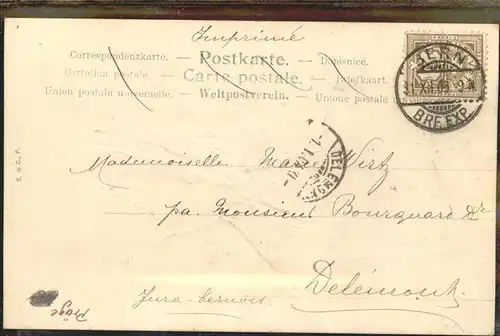 Imprimé
Correspondenzkarte. — Postkarte — Dopisnice.
Cartolina postale. — Carte postale. — Briefkaart.
Union postale universelle. — Weltpostverein. — Unione postale
BERN
31.XII.03. 9
BRF.EXP.
DELÉMONT
Mademoiselle Marie Wirtz
pa. Monsieur Bourquard
Delémont.
Jura-bernois.